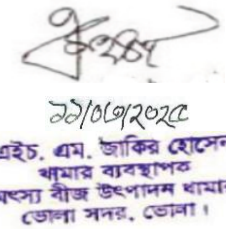 ১১/০৩/২০২৫
এইচ. এম. জাকির হোসেন
খামার ব্যবস্থাপক
মৎস্য বীজ উৎপাদন খামার
ভোলা সদর, ভোলা।